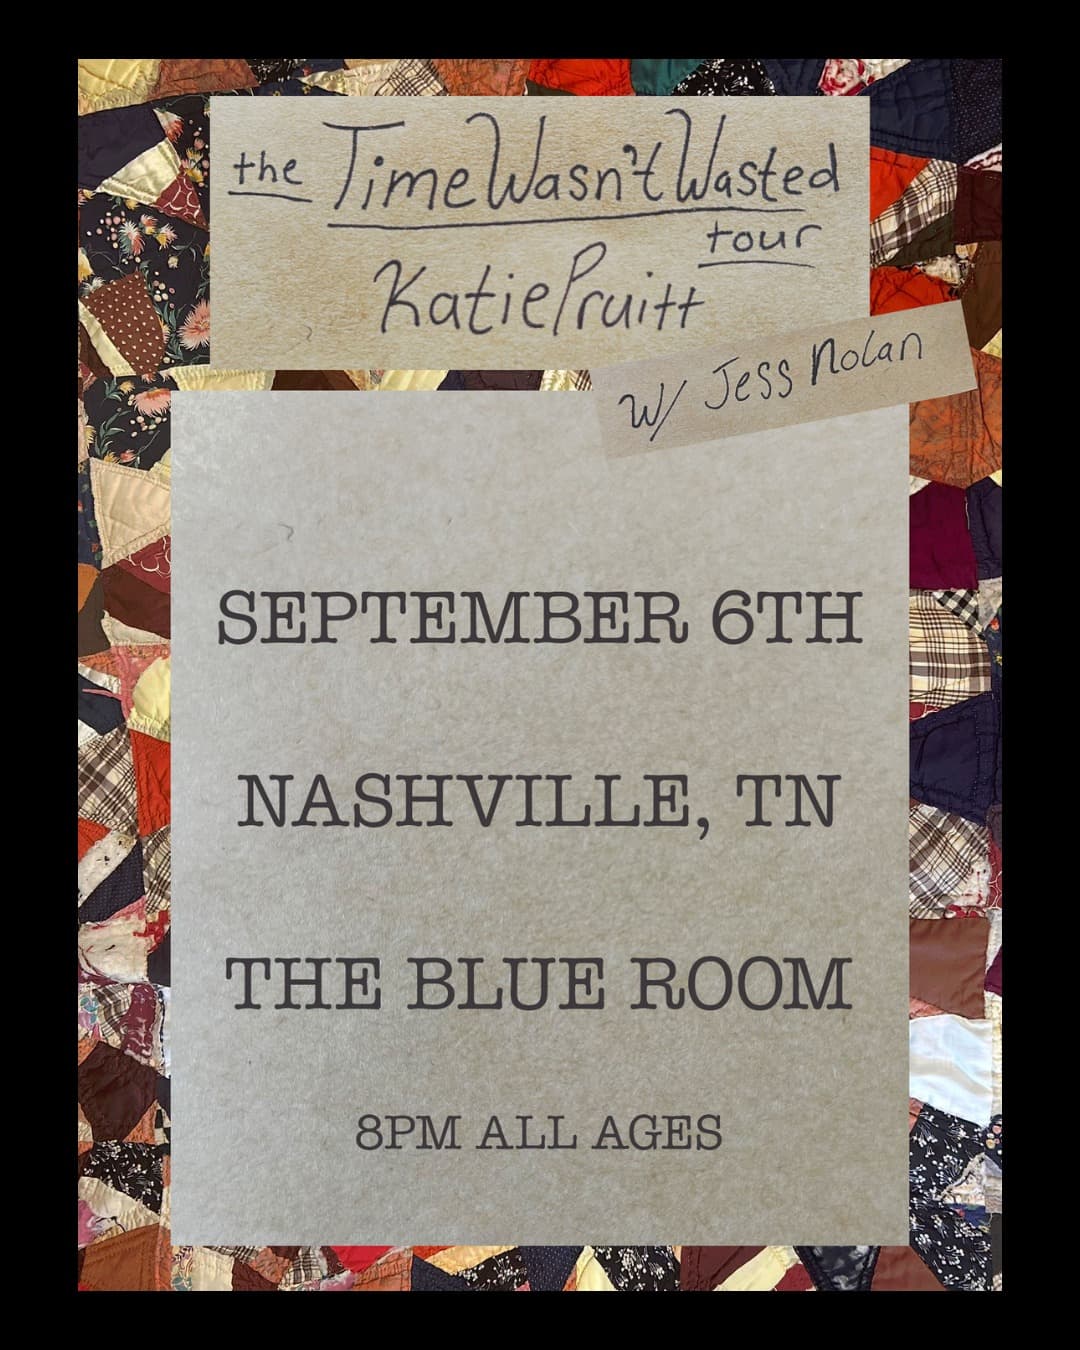 the Time Wasn't Wasted
tour
Katie Pruitt
W/ Jess Nolan
SEPTEMBER 6TH
NASHVILLE, TN
THE BLUE ROOM
8PM ALL AGES